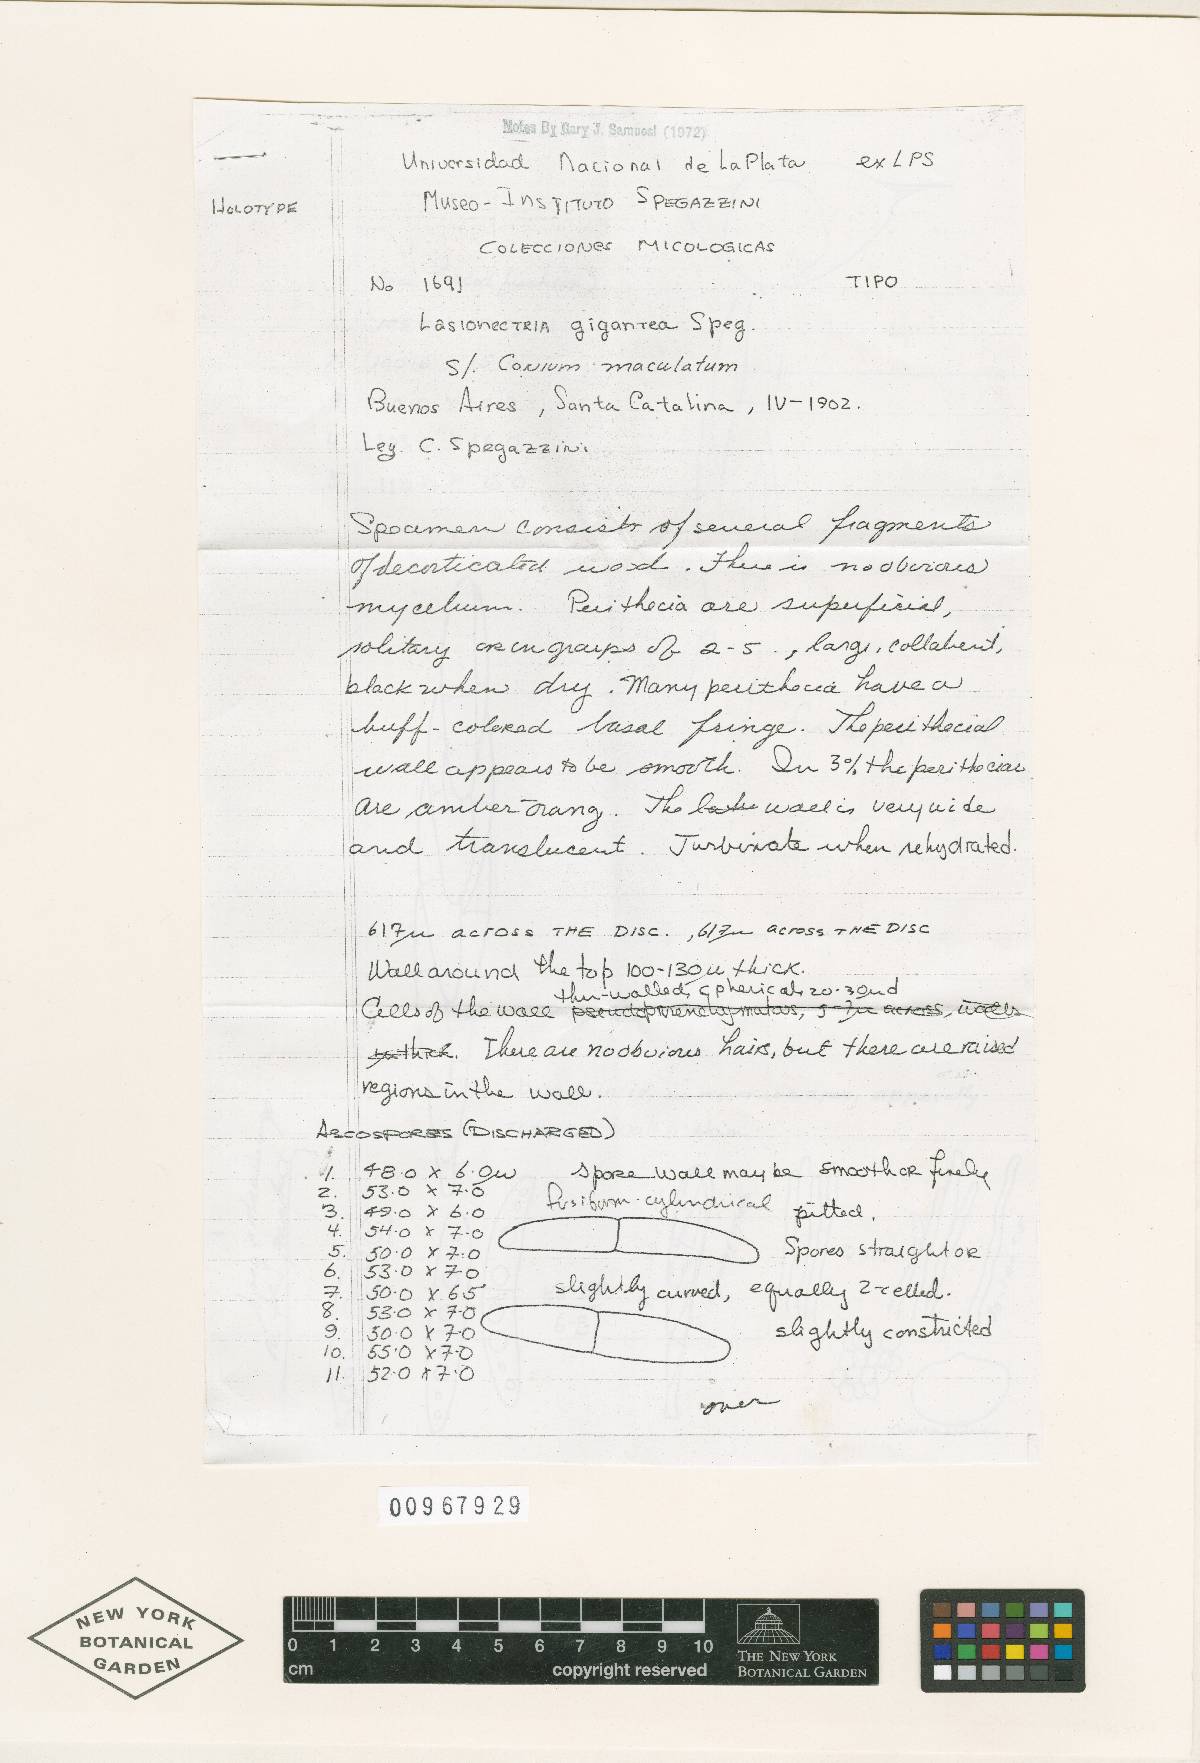 Notes By Gary J. Samuel (1972)
Universidad Nacional de La Plata ex LPS
HOLOTYPE
Museo-Instituto Spegazzini
Colecciones Micologicas
No 1691 TIPO
Lasionectria gigantea Speg.
S/. Conium maculatum
Buenos Aires, Santa Catalina, IV-1902.
Leg. C. Spegazzini
Specimen consists of several fragments
of decorticated wood. There is no obvious
mycelium. Perithecia are superficial,
solitary or in groups of 2-5, large, collabent,
black when dry. Many perithecia have a
buff-colored basal fringe. The perithecial
wall appears to be smooth. In 3% the perithecia
are amber-orang. The wall is very wide
and translucent. Turbinate when rehydrated.
617µ across THE DISC., 617µ across THE DISC
Wall around the top 100-130µ thick.
thin-walled, spherical, 20-30µd
Cells of the wall pseudoparenchymatous, 5-7µ across, walls
thick. There are no obvious hairs, but there are raised
regions in the wall.
ASCOSPORES (DISCHARGED)
1. 48.0 x 6.0µ Spore wall may be smooth or finely
2. 53.0 x 7.0 fusiform-cylindrical pitted.
3. 49.0 x 6.0
4. 54.0 x 7.0
5. 50.0 x 7.0 Spores straight or
6. 53.0 x 7.0
7. 50.0 x 6.5 slightly curved, equally 2-celled.
8. 53.0 x 7.0
9. 50.0 x 7.0 slightly constricted
10. 55.0 x 7.0
11. 52.0 x 7.0
over
00967929
NEW YORK
BOTANICAL
GARDEN
0 1 2 3 4 5 6 7 8 9 10
cm copyright reserved
THE NEW YORK
BOTANICAL GARDEN